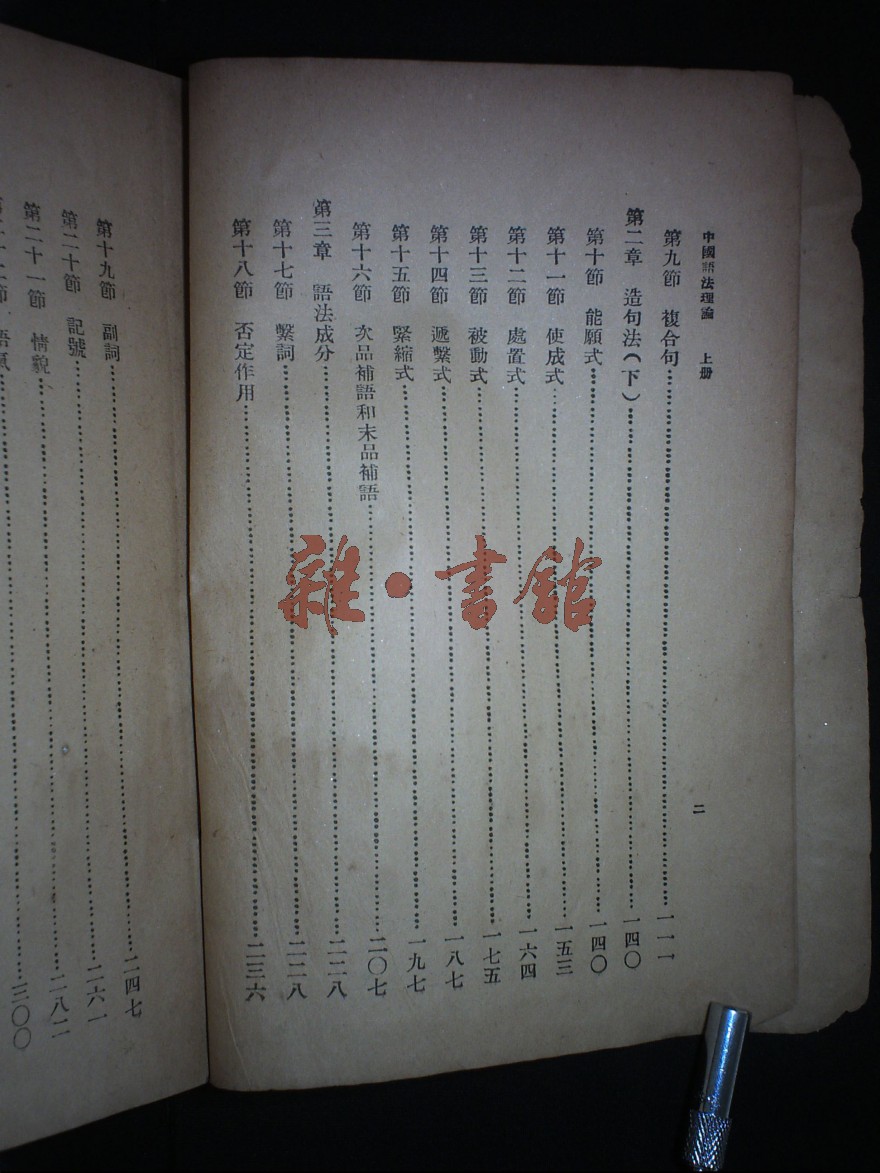 中國語法理論 上册
二
第九節 複合句……一一一
第二章 造句法(下)……一四〇
第十節 能願式……一四〇
第十一節 使成式……一五三
第十二節 處置式……一六四
第十三節 被動式……一七五
第十四節 遞繫式……一八七
第十五節 緊縮式……一九七
第十六節 次品補語和末品補語……二〇七
第三章 語法成分……二二八
第十七節 繫詞……二二八
第十八節 否定作用……二三六
第十九節 副詞……二四七
第二十節 記號……二六一
第二十一節 情貌……二八二
語氣……三〇〇
雜·書館